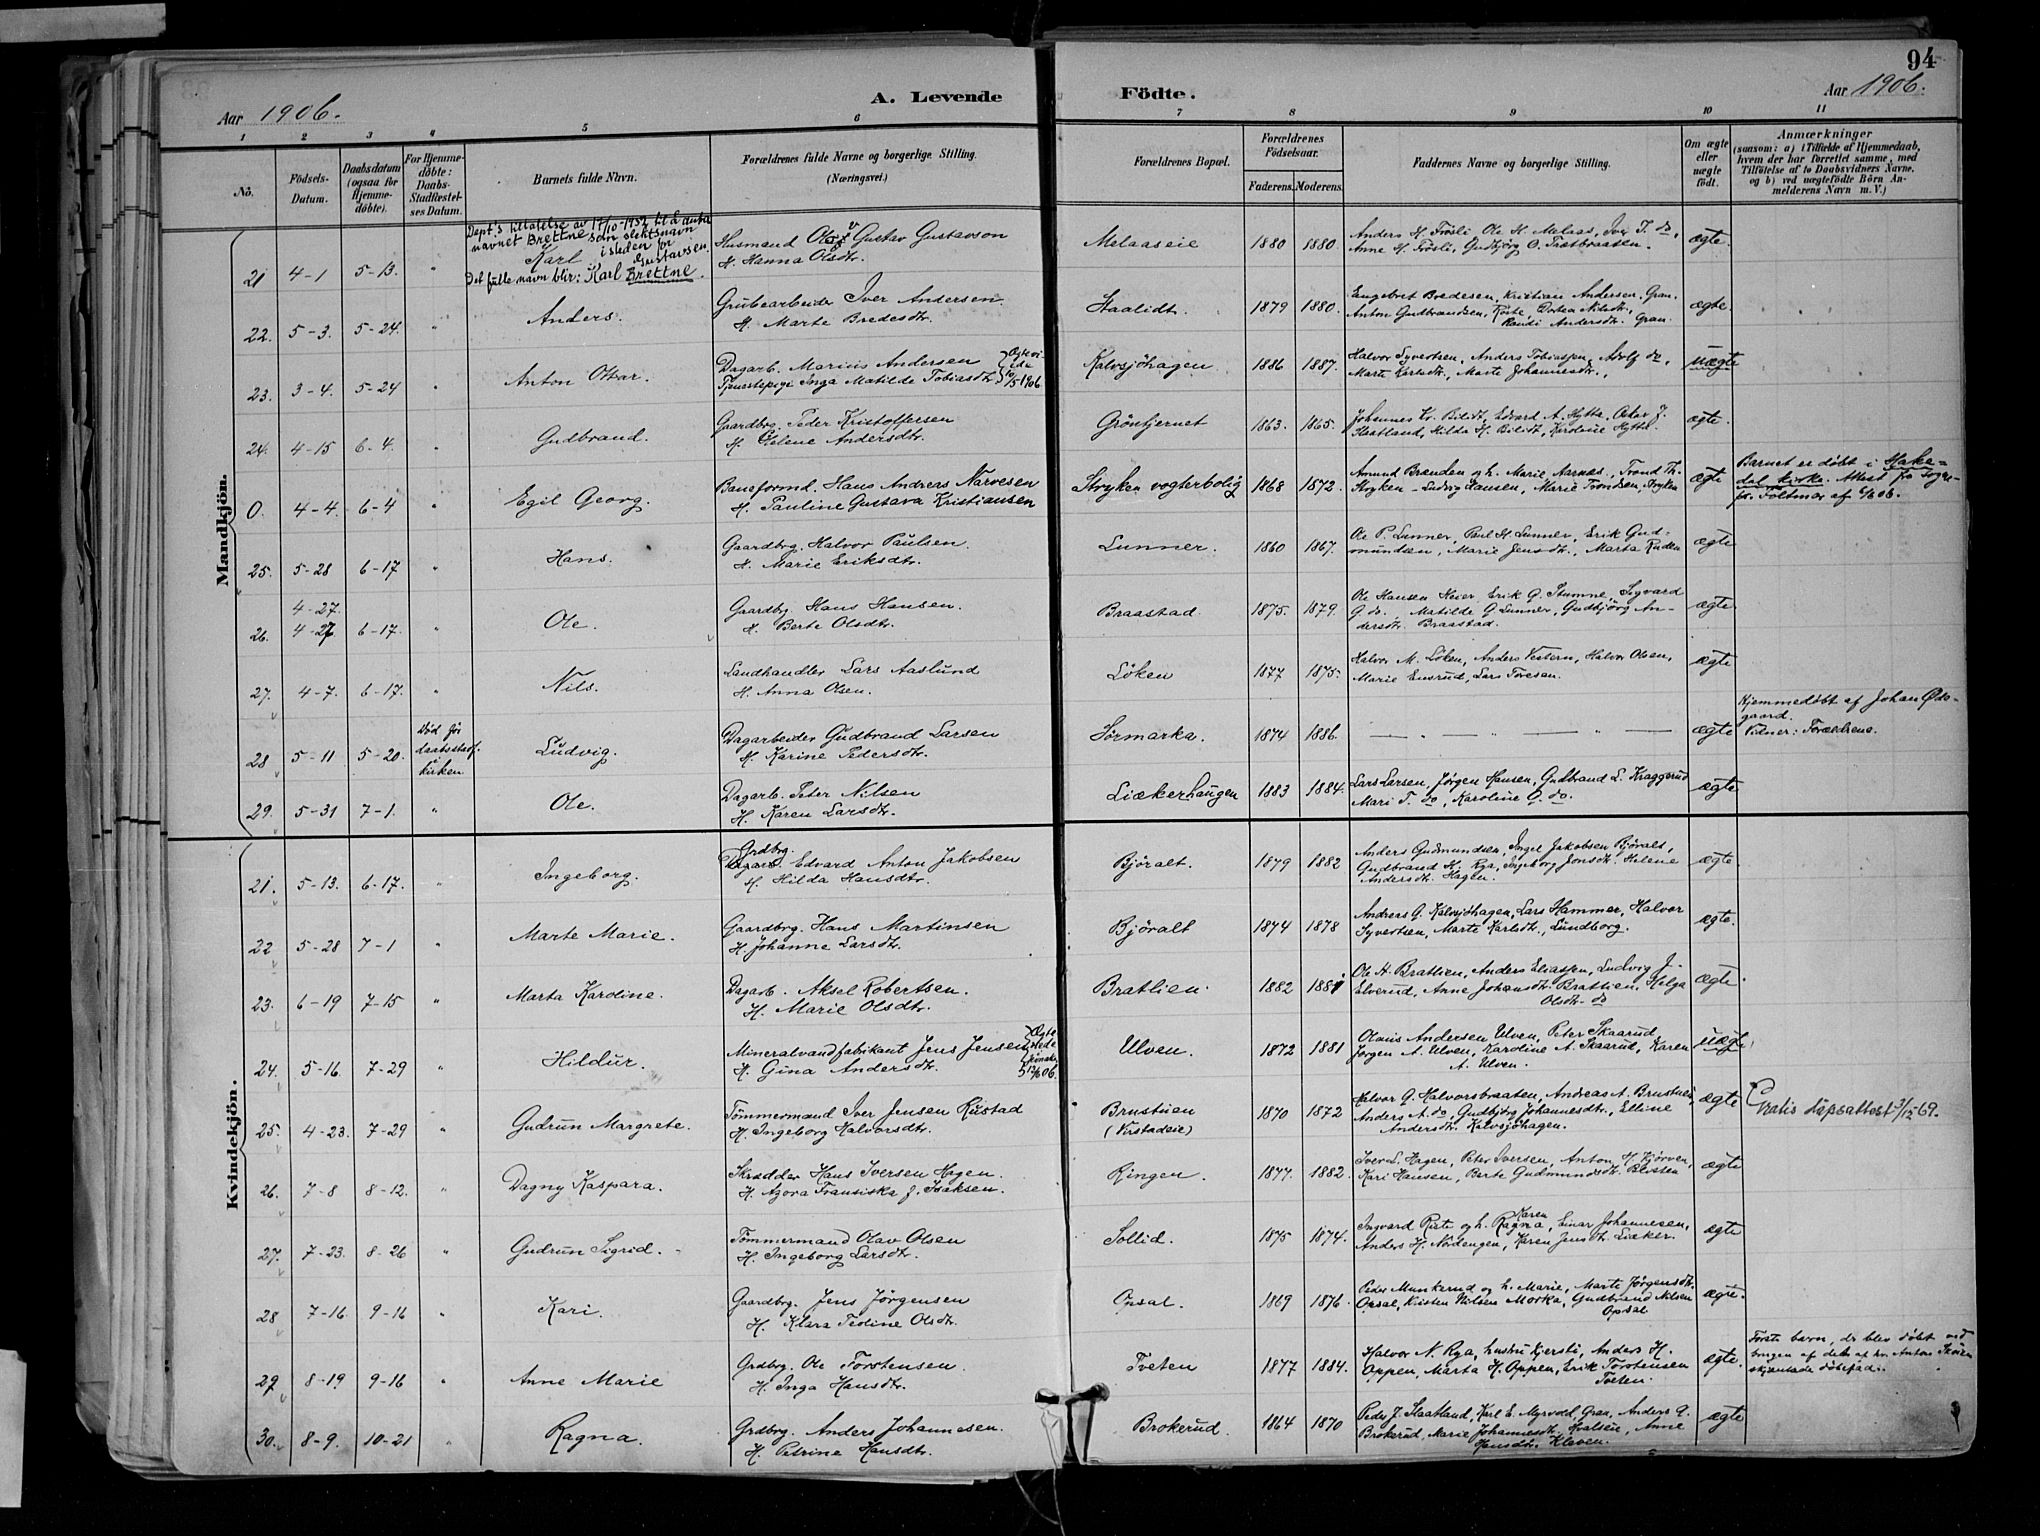 94
Aar 1906.
A. Levende
Födte.
Aar 1906.
1 2 3 4 5 6 7 8 9 10 11
No.
Födsels-Datum.
Daabsdatum (ogsaa for Hjemmedöbte).
For Hjemmedöbte: Daabs-Stadfæstelses Datum.
Barnets fulde Navn.
Forældrenes fulde Navne og borgerlige Stilling.
(Næringsvei.)
Forældrenes Bopæl.
Forældrenes Födselsaar.
Faderens. Moderens.
Faddernes Navne og borgerlige Stilling.
Om ægte eller uægte födt.
Anmærkninger
(saasom: a) i Tilfælde af Hjemmedaab, hvem der har forrettet samme, med Tilföielse af to Daabsvidners Navne, og b) ved uægtefödte Börn Anmelderens Navn m. V.)
Mandkjön.
Dept's tillatelse av 17/10-1952 til å anta
navnet Brettne som slektsnavn
i steden for
Gustavsen.
21 4-1 5-13. " Karl
Det fulle navn blir: Karl Brettne.
Husmand Ole Gustav Gustavson
H. Hanna Olsdtr.
Melaaseie 1880 1880
Anders H. Frösli Ole H. Melaas, Iver T. do,
Anne H. Frösli, Gudbjörg O. Trætbraaten.
ægte
22. 5-3. 5-24. " Anders.
Grubearbeider Iver Andersen
H. Marte Bredesdtr.
Staalidt. 1879 1880.
Engebret Bredesen, Kristian Andersen, Gran.
Anton Gudbrandsen, Röste, Dortea Nilsdtr.,
Randi Andersdtr. Gran.
ægte.
23. 3-4. 5-24 " Anton Ottar.
Dagarb. Marius Andersen
Tjenestepige Inga Matilde Tobiasdtr.
Kalvsjöhagen 1886 1887.
Halvor Syvertsen, Anders Tobiassen, Adolf do,
Marte Karlsdtr., Marte Johannesdtr.,
uægte
24. 4-15 6-4. " Gudbrand.
Gaardbrg. Peder Kristoffersen
H. Helene Andersdtr.
Gröntjernet 1863. 1865.
Johannes Kr. Bilidt, Edvard A. Hytta, Oskar J.
Slaatland, Hilda H. Bilidt, Karoline Hytta.
ægte.
0. 4-4. 6-4 " Egil Georg.
Baneformd. Hans Andreas Narvesen
H. Pauline Gustava Kristiansen
Stryken vogterbolig 1868 1872.
Amund Brænden og h. Marie Aarnæs, Trond Th.
Stryken - Ludvig Hansen, Marie Trondsen, Stryken
ægte
Barnet er döbt i Hake-
dal kirke. Attest fra Sogne-
pr. Foltmar af 6/6 06.
25. 5-28 6-17 " Hans.
Gaardbrg. Halvor Paulsen.
H. Marie Eriksdtr.
Lunner. 1860 1867.
Ole P. Lunner, Paul H. Lunner, Erik Gud-
mundsen, Marie Jensdtr., Marta Ruden
ægte
4-27.
26. 4-27 6-17. " Ole.
Gaardbg. Hans Hansen.
H. Berte Olsdtr.
Braastad. 1875. 1879.
Ole Hansen Heier, Erik G. Stumne, Sigvard
G. do. Matilde G. Lunner, Gudbjörg An-
dersdtr. Braastad.
ægte.
27. 4-7. 6-17. " Nils.
Landhandler Lars Aaslund
H. Anna Olsen.
Löken 1877 1875.
Halvor M. Löken, Anders Vestern, Halvor Olsen,
Marie Ensrud, Lars Toresen.
ægte
28 5-11 5-20.
Död för
daabsstadf.
i kirken
Ludvig.
Dagarbeider Gudbrand Larsen
H. Karine Pedersdtr.
Sörmarka. 1874 1886.
— " — " — " —
ægte
Hjemmedöbt af Johan Öds-
gaard.
Vidner: Forældrene.
29. 5-31 7-1. " Ole.
Dagarb. Peter Nilsen
H. Karen Larsdtr.
Liækerhaugen 1883 1884.
Lars Larsen, Jørgen Hansen, Gudbrand L. Kraggerud
Mari T. do, Karoline O. do.
ægte
Kvindekjön.
21. 5-13. 6-17. " Ingeborg.
Grdbrg.
Edvard Anton Jakobsen
H. Hilda Hansdtr.
Björalt. 1879 1882
Anders Gudmundsen, Ingel Jakobsen Björalt,
Gudbrand H. Rya, Ingeborg Jonsdtr. Helene
Andersdtr. Hagen.
ægte.
22 5-28 7-1 " Marte Marie.
Gaardbrg. Hans Martinsen
H. Johanne Larsdtr.
Björalt 1874 1878
Andreas G. Kalvsjöhagen, Lars Hammer, Halvor
Syvertsen, Marte Karlsdtr., Lundborg.
ægte.
23. 6-19 7-15 " Marta Karoline.
Dagarb. Aksel Robertsen.
H. Marie Olsdtr.
Bratlien. 1882 1881
Ole H. Bratlien, Anders Eliassen, Ludvig J.
Elverud, Anne Johansdtr. Bratlien, Helga
Olsdtr. do
ægte.
24. 5-16 7-29 " Hildur.
Mineralvandfabrikant Jens Jensen
H. Gina Andersdtr.
Ulven. 1872 1881
Olavis Andersen Ulven, Peter Skaarud,
Jørgen A. Ulven, Karoline A. Skaarud, Karen
A. Ulven.
uægte
25. 4-23. 7-29 " Gudrun Margrete.
Tömmermand Iver Jensen Rustad
H. Ingeborg Halvorsdtr.
Brustuen
1870 1872
Halvor G. Halvorsbraaten, Andreas A. Brustuen,
Anders A. do, Gudbjörg Johannesdtr., Elline
Andersdtr. Kalvsjöhagen.
ægte
Gratis dåpsattest 3/12-69.
26. 7-8 8-12. " Dagny Kaspara.
Skrædder Hans Iversen Hagen.
H. Agora Fransiska f. Isaksen.
Ringen. 1877. 1882.
Iver L. Hagen, Peter Iversen, Anton H. Kjörven,
Kari Hansen, Berte Gudmundsdtr. Beisten
ægte
27. 7-23. 8-26 " Gudrun Sigrid.
Tömmermand Olav Olsen
H. Ingeborg Larsdtr.
Sollid. 1875 1874.
Karen
Ingvard Riste og h. Ragna, Einar Johannesen,
Anders H. Nordengen, Karen Jensdtr. Liæker.
ægte
28 7-16. 9-16 " Kari.
Gaardbrg. Jens Jörgensen
H. Klara Tedine Olsdtr.
Opsal. 1869 1876.
Peder Munkerud og h. Marie, Marte Jörgensdtr.
Opsal, Kristen Nilsen Morka, Gudbrand Nilsen
Opsal
ægte.
29 8-19 9-16 " Anne Marie
Grdbrg. Ole Torstensen.
H. Inga Hansdtr.
Tveten 1877 1884.
Halvor N. Rya, hustru Kjersti, Anders H.
Oppen, Marta H. Oppen, Erik Torstensen
Tveten.
ægte.
Förste barn, der blev döbt ved
brugen af det af hr. Anton Skøien
skjænkede döbefad.
30. 8-9. 10-21 " Ragna.
Grdbrg. Anders Johannesen.
H. Petrine Hansdtr.
Brokerud. 1864 1870
Peder J. Slaatland, Karl E. Myrvold, Gran, Anders G.
Brokerud, Marie Johannesdtr. Hvalsen, Anne
Hansdtr. Kleven.
ægte